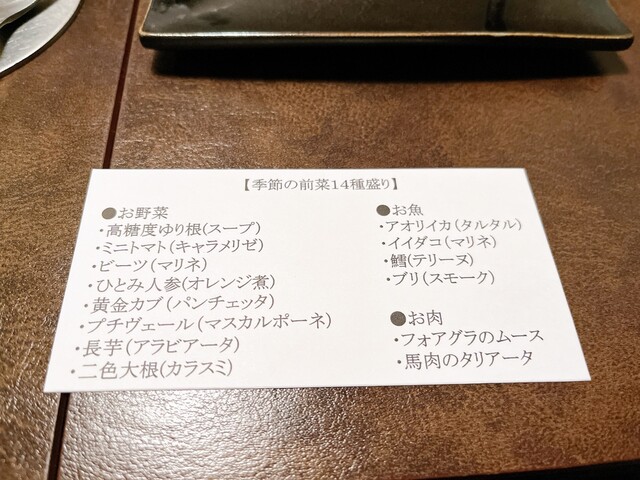 【季節の前菜14種盛り】
●お野菜
・高糖度ゆり根(スープ)
・ミニトマト(キャラメリゼ)
・ビーツ(マリネ)
・ひとみ人参(オレンジ煮)
・黄金カブ(パンチェッタ)
・プチヴェール(マスカルポーネ)
・長芋(アラビアータ)
・二色大根(カラスミ)
●お魚
・アオリイカ(タルタル)
・イイダコ(マリネ)
・鱈(テリーヌ)
・ブリ(スモーク)
●お肉
・フォアグラのムース
・馬肉のタリアータ